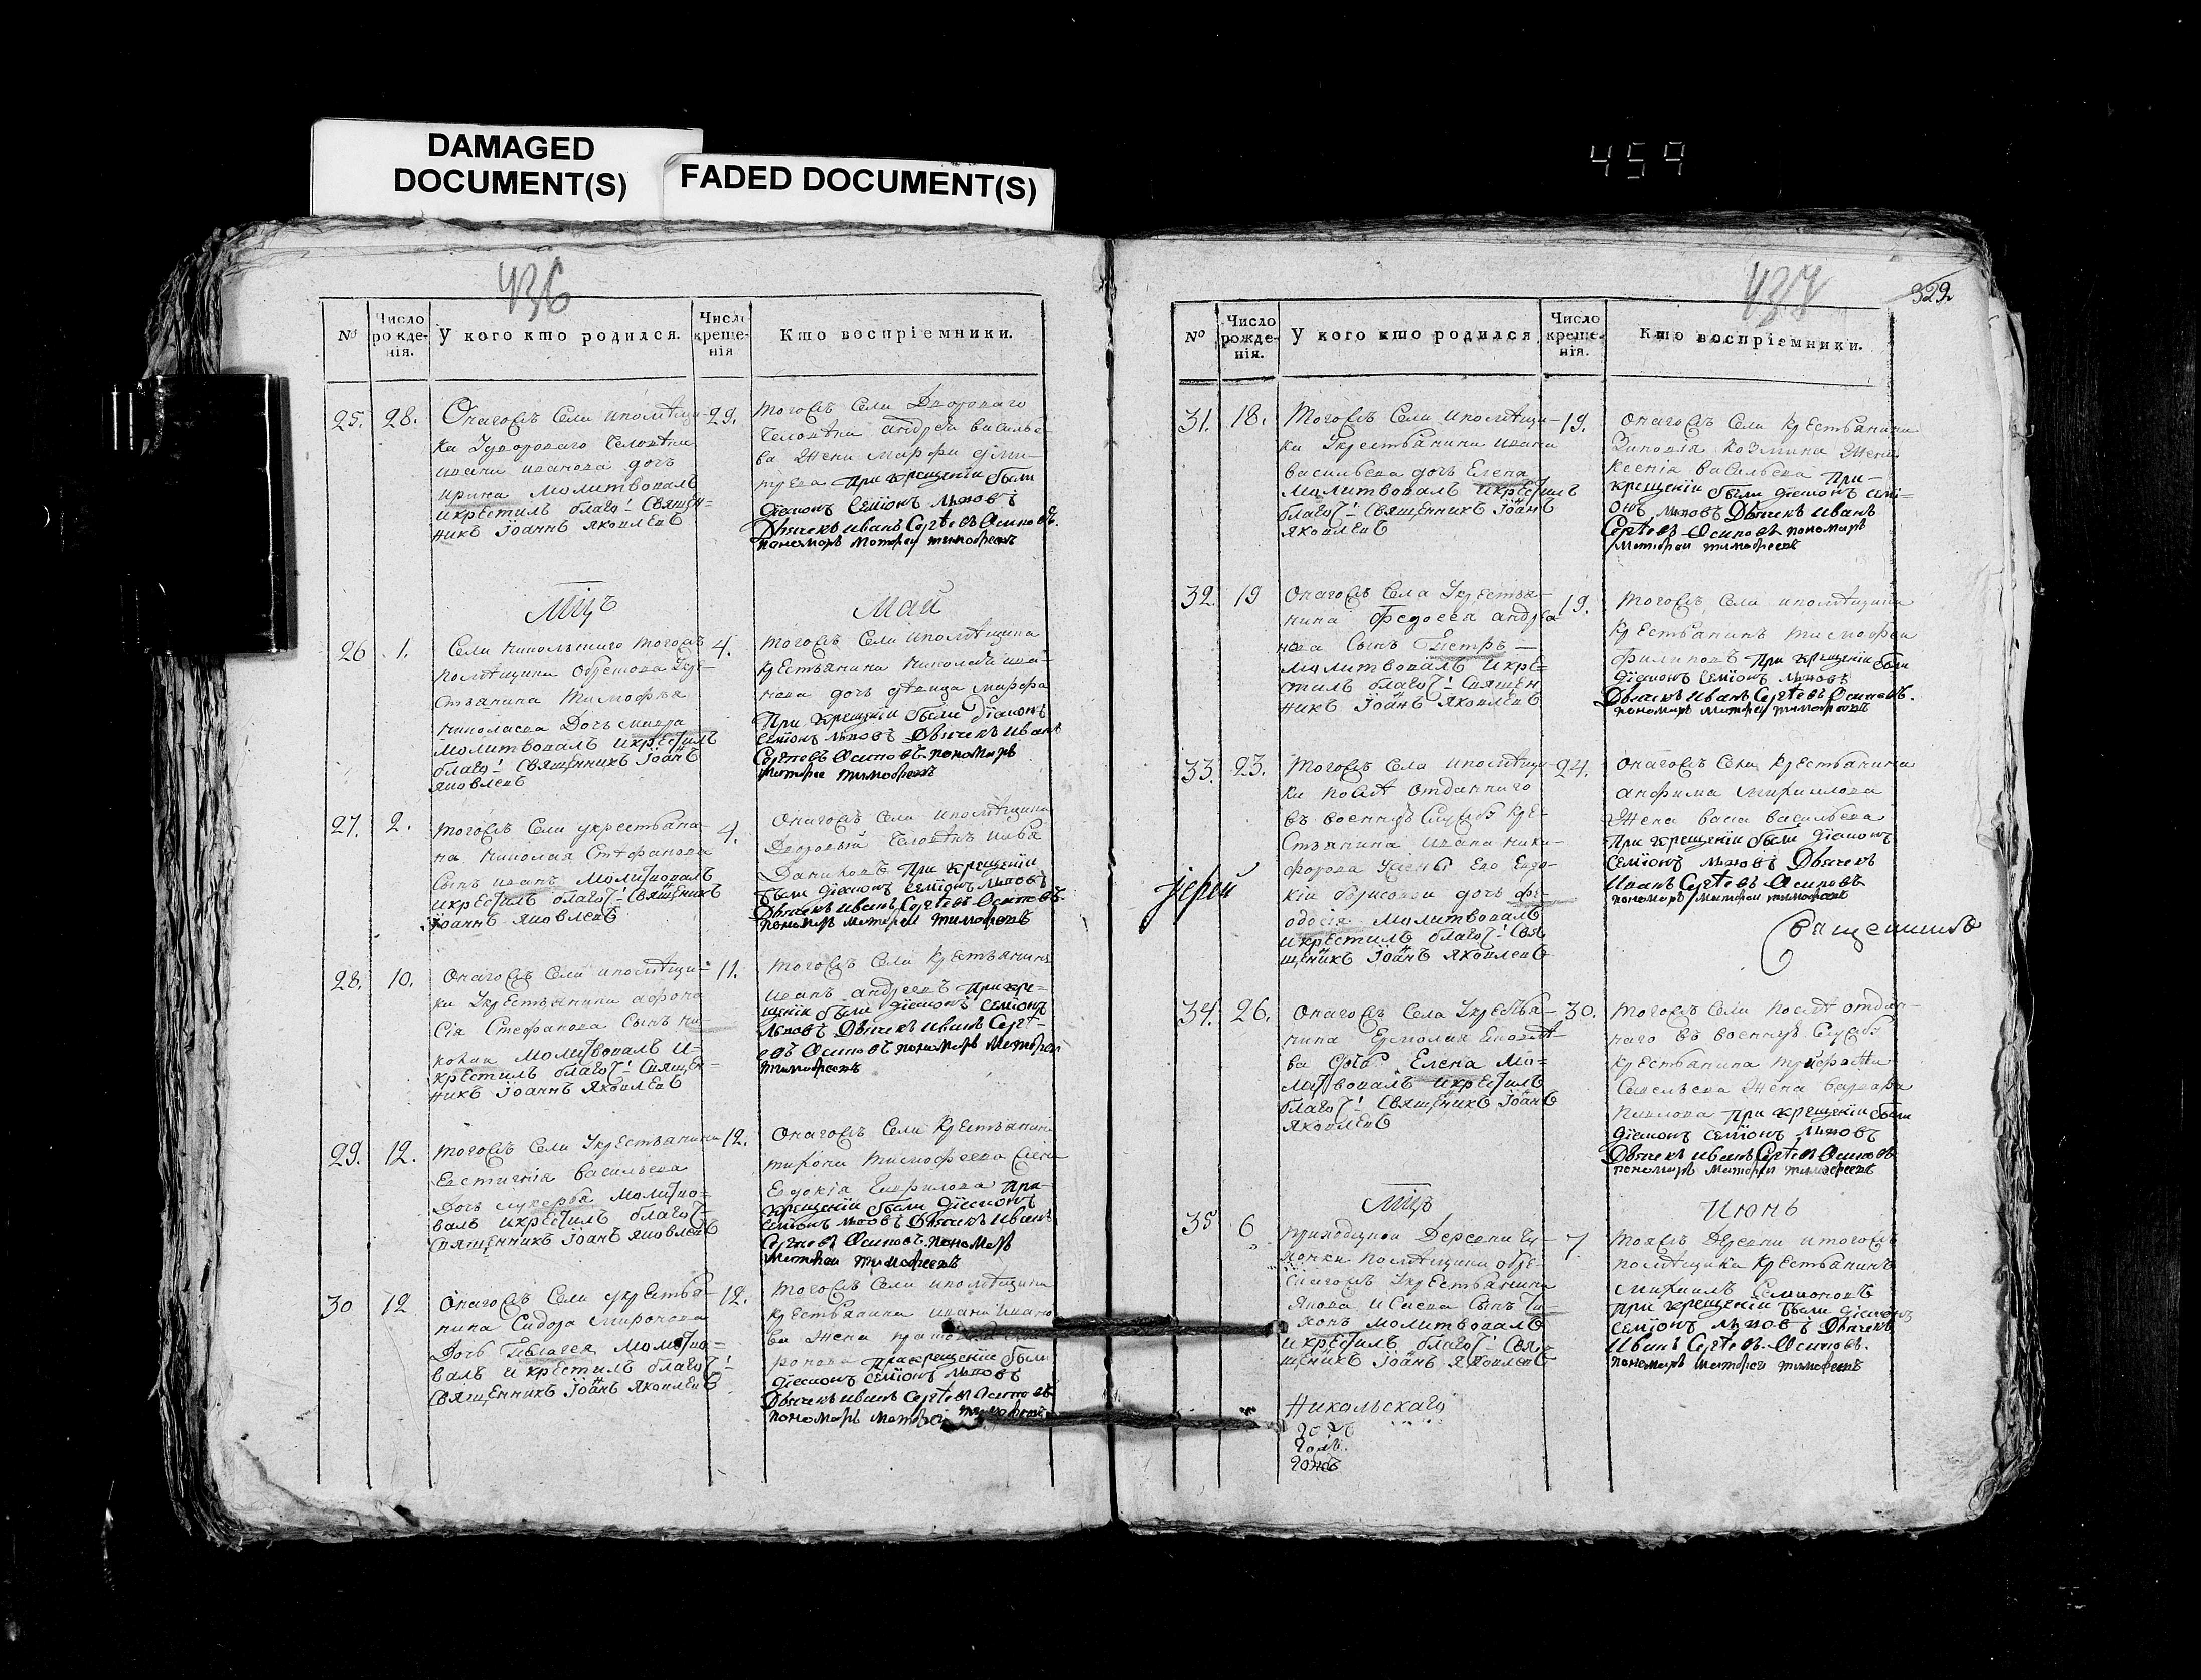 DAMAGED
DOCUMENT(S)
FADED DOCUMENT(S)
459
436
№
Число рожденія.
У кого кто родился.
Число крещенія
Кто воспріемники.
25. 28.
Онагожъ Села и помѣщи-
ка у двороваго человѣка
ивана иванова дочь
ирина молитвовалъ
и крестилъ благоч! Священ=
никъ Іоаннъ Яковлевъ
29.
тогожъ Села Двороваго
человѣка андрея василье-
ва жена марфа дими-
трева при крещеніи были
діаконъ Семіонъ Львовъ
Дьячекъ иванъ Сергѣевъ Осиповъ.
пономарь матфей тимофеевъ
Мцъ Май
26 1.
Села никольскаго тогожъ
помѣщика
стьянина тимофѣя
николаева Дочь
молитвовалъ и крестилъ
благоч! Священникъ Іоанъ
яковлевъ
4.
тогожъ Села и помѣщика
крестьянина николая ива-
нова дочь дѣвица марфа
При крещеніи были діаконъ
Семіонъ Львовъ Дьячекъ иванъ
Сергѣевъ Осиповъ пономарь
матфей тимофеевъ
27. 2.
тогожъ Села у крестьяни-
на николая Стефанова
Сынъ иванъ молитвовалъ
и крестилъ благоч! Священникъ
Іоаннъ яковлевъ
4.
Онагожъ Села и помѣщика
Дворовый человѣкъ
при крещеніи
были діаконъ Семіонъ Львовъ
Дьячекъ иванъ Сергѣевъ Осиповъ
пономарь матфей тимофеевъ
28. 10.
Онагожъ Села и помѣщи-
ка у крестьянина афана
сія Стефанова Сынъ ни-
колай молитвовалъ и-
крестилъ благоч! Священ-
никъ Іоаннъ Яковлевъ
11.
тогожъ Села крестьянинъ
иванъ андреевъ При кре-
щеніи были діаконъ Семіонъ
Львовъ Дьячекъ иванъ Сергѣ-
евъ Осиповъ пономарь матфей
тимофеевъ
29. 12.
тогожъ Села у крестьянина
Евстигнія васильева
Дочь молитво=
валъ и крестилъ благоч!
Священникъ Іоанъ яковлевъ
12.
Онагожъ Села крестьянина
тимофеева жена
Евдокія гаврилова При-
крещеніи были діаконъ
Семіонъ Львовъ Дьячекъ иванъ
Сергѣевъ Осиповъ пономарь
матфей тимофеевъ
30 12
Онагожъ Села у крестья-
нина Сидора миронова
Дочь Пелагея молитво=
валъ и крестилъ благоч!
Священникъ Іоанъ Яковлевъ
12.
тогожъ Села и помѣщика
крестьянина ивана ивано
ва жена
при крещеніи были
діаконъ Семіонъ Львовъ
Дьячекъ иванъ Сергѣевъ Осиповъ
пономарь матфей тимофеевъ
329
№
Число рожденія.
У кого кто родился
Число крещенія.
Кто воспріемники.
31. 18.
тогожъ Села и помѣщи-
ка у крестьянина ивана
васильева дочь Елена
молитвовалъ и крестилъ
благоч! Священникъ Іоанъ
яковлевъ
19.
онагожъ Села крестьянина
Зиновія козмина жена
ксенія васильева При-
крещеніи были діаконъ Семі-
онъ Львовъ Дьячекъ иванъ
Сергѣевъ Осиповъ пономарь
матфей тимофеевъ
32. 19
Онагожъ Села у крестья-
нина Федосея андрея-
нова Сынъ Петръ
молитвовалъ и кре-
стилъ благоч! Священ
никъ Іоанъ Яковлевъ
19.
тогожъ Села и помѣщика
крестьянинъ тимофей
филиповъ при крещеніи были
діаконъ Семіонъ Львовъ
Дьячекъ иванъ Сергѣевъ Осиповъ.
пономарь матфей тимофеевъ
33. 23.
тогожъ Села и помѣщи-
ка послѣ отданнаго
въ военную службу кре-
стьянина ивана ники-
форова у жены его Евдо-
кіи борисовой дочь фе-
одосія молитвовалъ
и крестилъ благоч! Свя
щеникъ Іоанъ Яковлевъ
24.
онагожъ Села крестьянина
анфима
жена васильева
При крещеніи были діаконъ
Семіонъ Львовъ Дьячекъ
иванъ Сергѣевъ Осиповъ
пономарь матфей тимофеевъ
Іерей
Священникъ
34. 26.
Онагожъ Села у крестья-
нина Ермолая
ва дочь Елена мо-
литвовалъ и крестилъ
благоч! Священникъ Іоанъ
яковлевъ
30.
тогожъ Села послѣ отдан-
наго въ военную службу
крестьянина
жена варвара
Павлова при крещеніи были
діаконъ Семіонъ Львовъ
Дьячекъ иванъ Сергѣевъ Осиповъ
пономарь матфей тимофеевъ
Мцъ Июнь
35 6
приходцкой Деревни
помѣщика
у крестьянина
Якова исаева Сынъ Ти
хонъ молитвовалъ
и крестилъ благоч! Свя
щеникъ Іоанъ Яковлевъ
7.
тояжъ Деревни и тогожъ
помѣщика крестьянинъ
Семионовъ
при крещеніи были діаконъ
Семіонъ Львовъ Дьячекъ
иванъ Сергѣевъ Осиповъ.
пономарь матфей тимофеевъ
Никольскаго